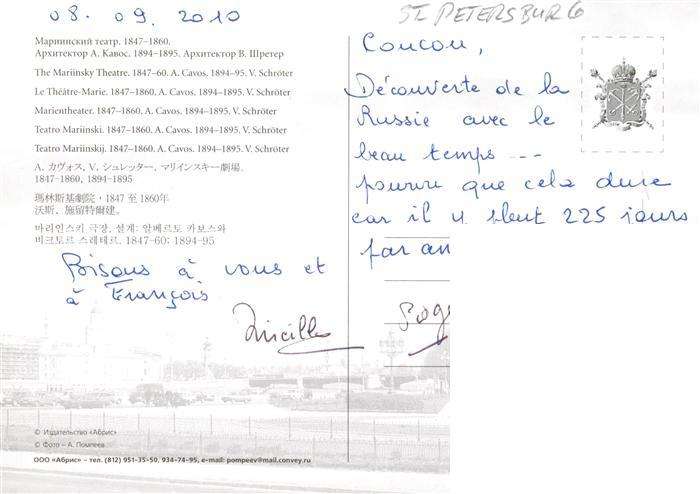 08.09.2010
ST. PETERSBURG
Мариинский театр. 1847–1860.
Архитектор А. Кавос. 1894–1895. Архитектор В. Шретер
The Mariinsky Theatre. 1847–60. A. Cavos. 1894–95. V. Schröter
Le Théâtre-Marie. 1847–1860. A. Cavos. 1894–1895. V. Schröter
Marientheater. 1847–1860. A. Cavos. 1894–1895. V. Schröter
Teatro Mariinski. 1847–1860. A. Cavos. 1894–1895. V. Schröter
Teatro Mariinskij. 1847–1860. A. Cavos. 1894–1895. V. Schröter
A. カヴォス, V. シュレッター, マリインスキー劇場。
1847-1860, 1894-1895
瑪林斯基劇院·1847 至 1860年
沃斯、施留特爾建。
마리인스키 극장, 설계: 알베르토 카보스와
비크토르 스레테르. 1847-60; 1894-95
Coucou,
Découverte de la
Russie avec le
beau temps ...
pourvu que cela dure
car il y pleut 225 jours
par an
Bisous à vous et
à François
© Издательство «Абрис»
© Фото – А. Помпеев
ООО «Абрис» – тел. (812) 951-35-50, 934-74-95, e-mail: pompeev@mail.convey.ru